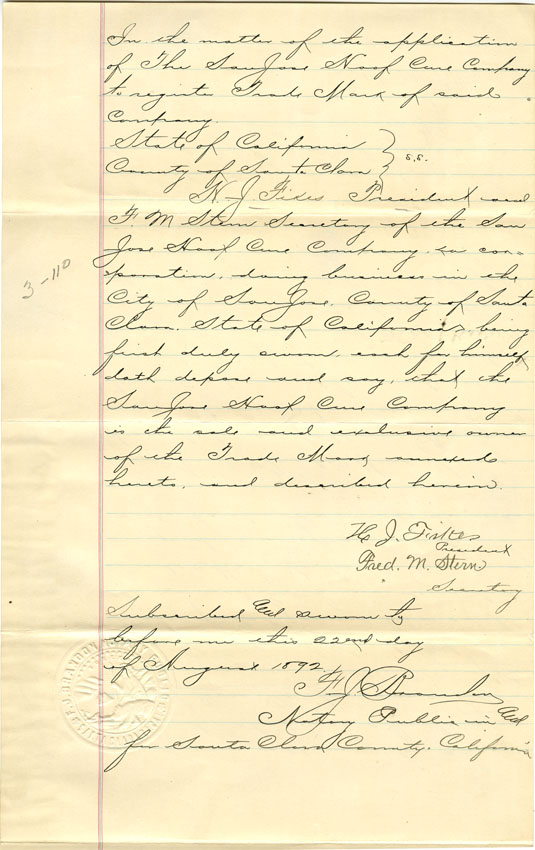 In the matter of the application
of The San Jose Hoof Cure Company
to registe Trade Mark of said
Company.
State of California
County of Santa Clara } s.s.
H. J. President and
F. M Stern Secretary of the San
Jose Hoof Cure Company, a cor-
poration, doing business in the
City of San Jose, County of Santa
Clara, State of California, being
first duly sworn, each for himself
doth depose and say, that the
San Jose Hoof Cure Company
is the sole and exclusive owner
of the Trade Mark annexed
hereto, and described herein.
3-110
H J.
President
Fred. M. Stern
Secretary
Subscribed and sworn to
before me this 22nd day
of August 1892.
F. J. Brandon
Notary Public in and
for Santa Clara County. California